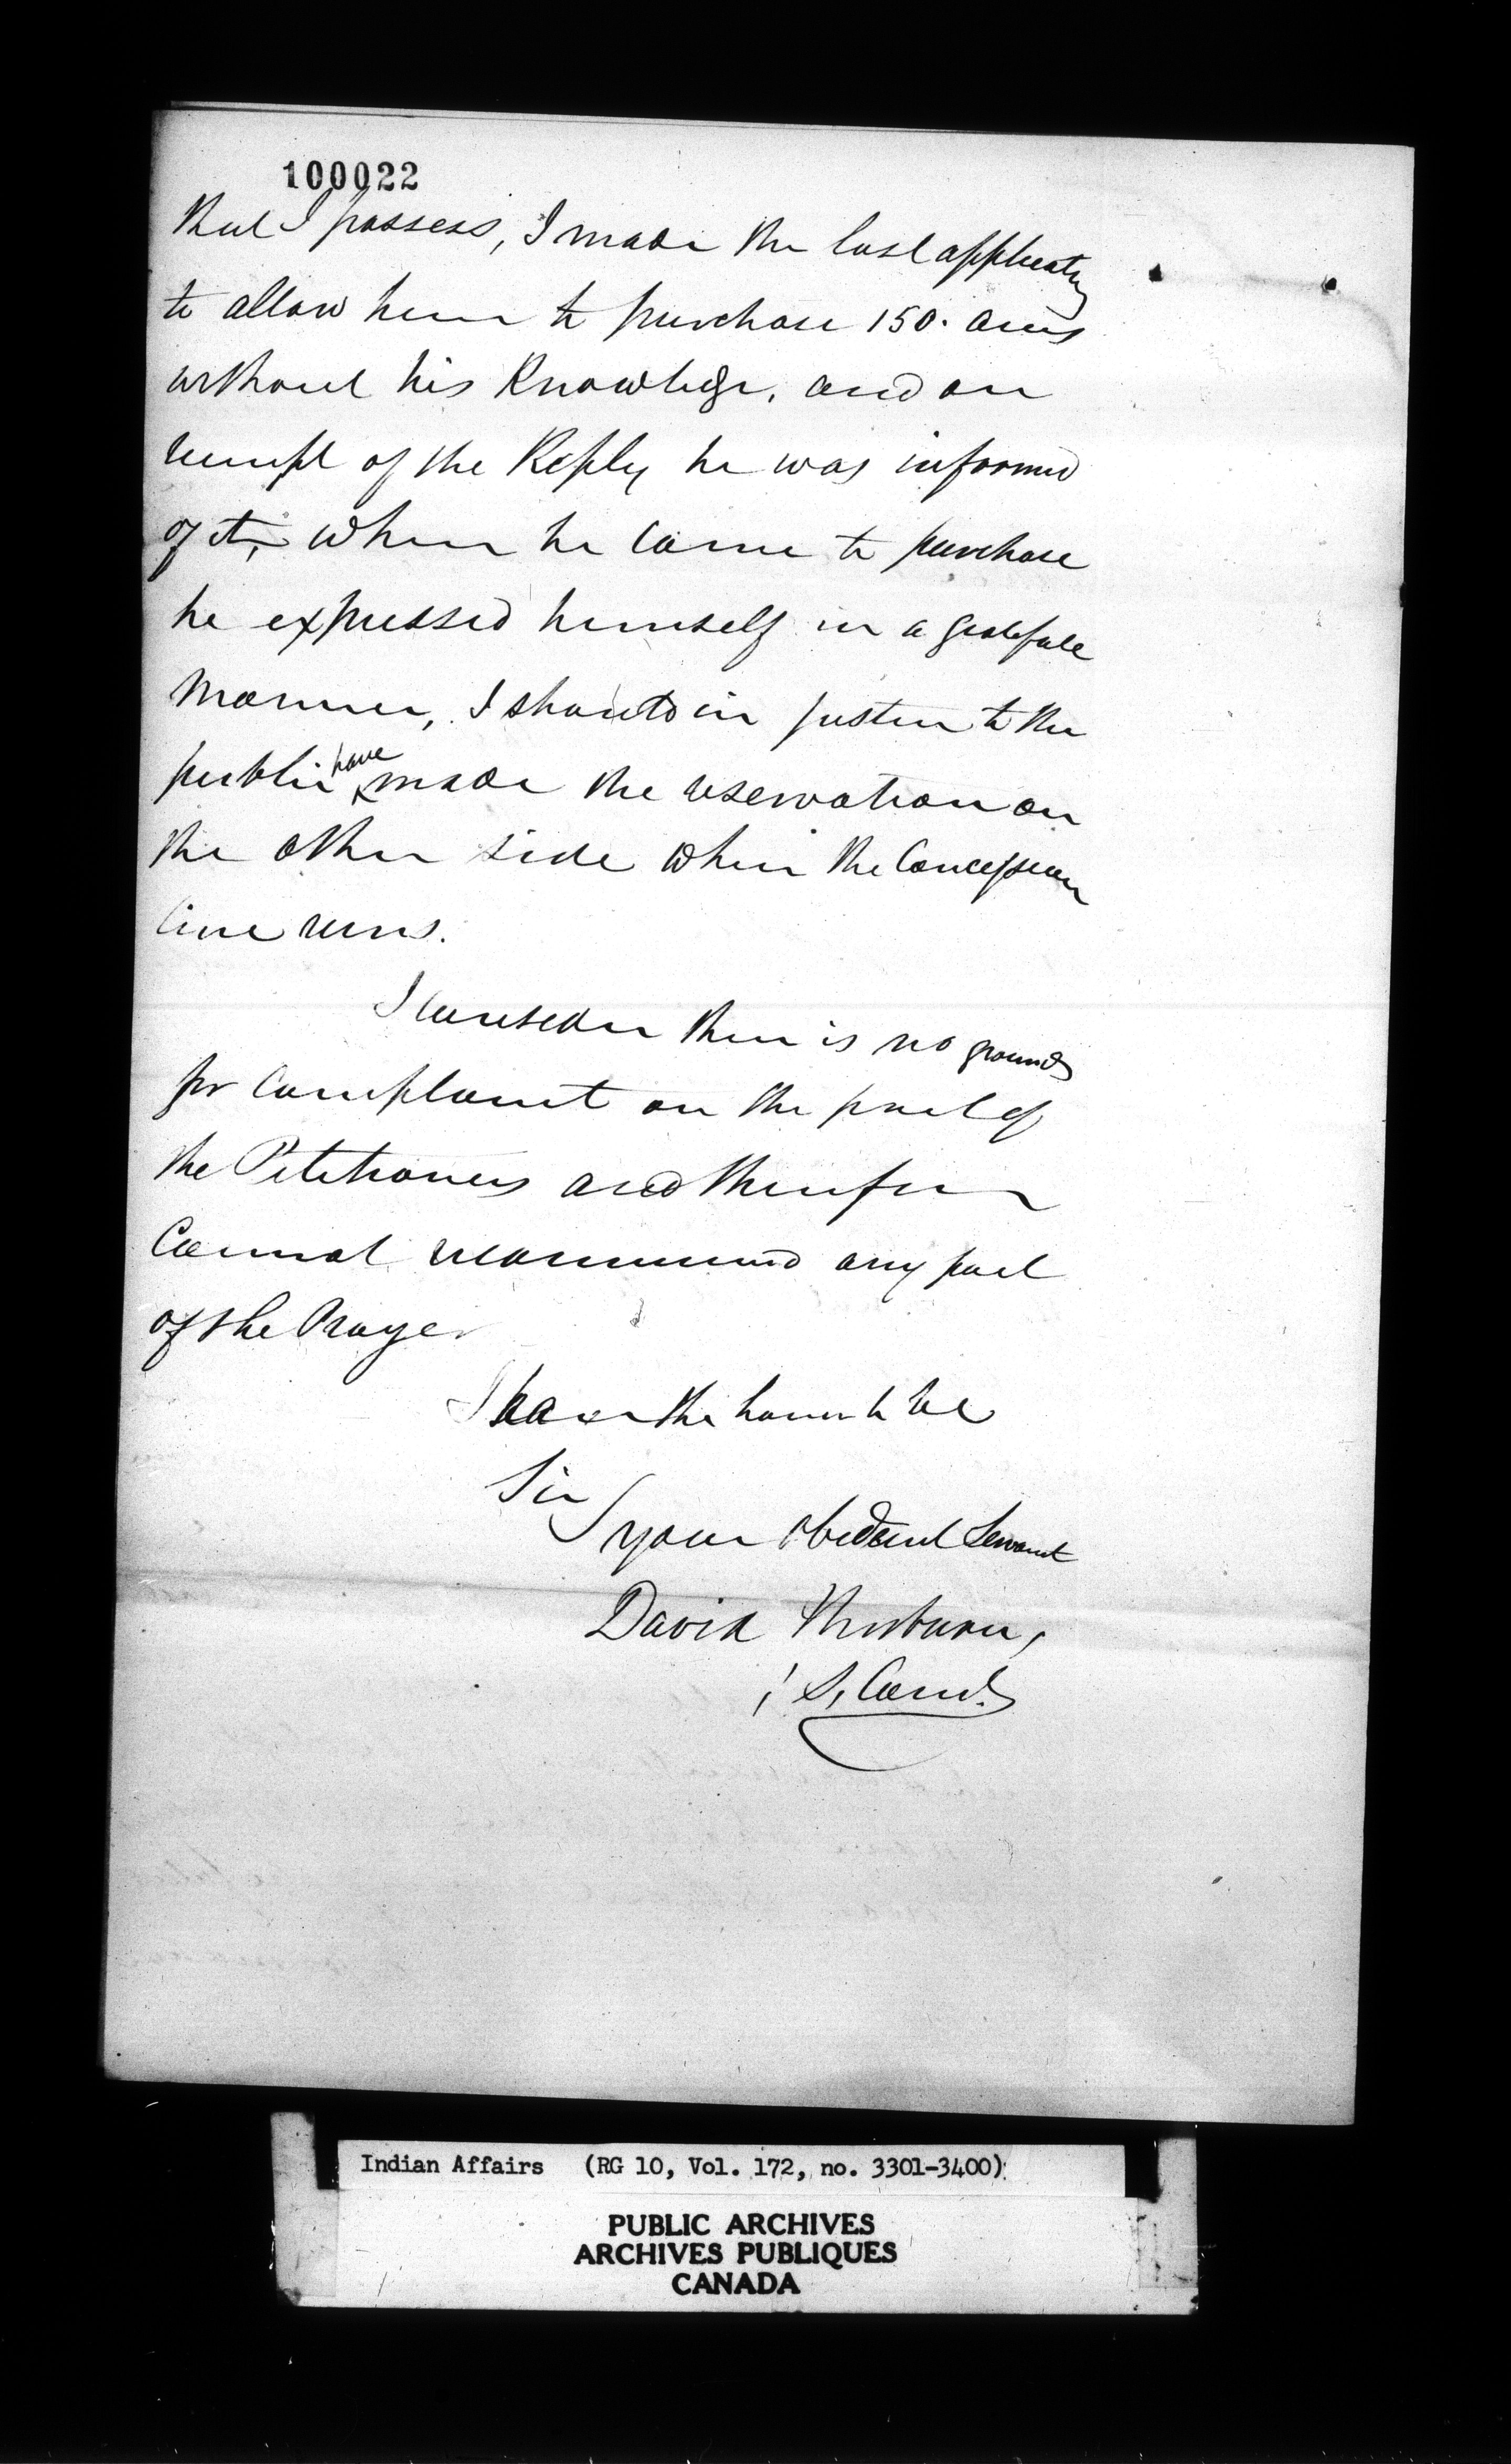 100022
that I possess, I made the last application
to allow him to purchase 150. acres
without his Knowledge, and on
receipt of the Reply he was informed
of it, when he came to purchase
he expressed himself in a gratefull
manner, I should in justice to the
public have made the reservation on
the other side when the Concession
line runs.
I consider there is no grounds
for Complaint on the part of
the Petitioners and therefore
Cannot recommend any part
of the Prayer
I have the honor to be
Sir
your obedient Servant
David Thorburn,
Indian Affairs (RG 10, Vol. 172, no. 3301-3400)
PUBLIC ARCHIVES
ARCHIVES PUBLIQUES
CANADA